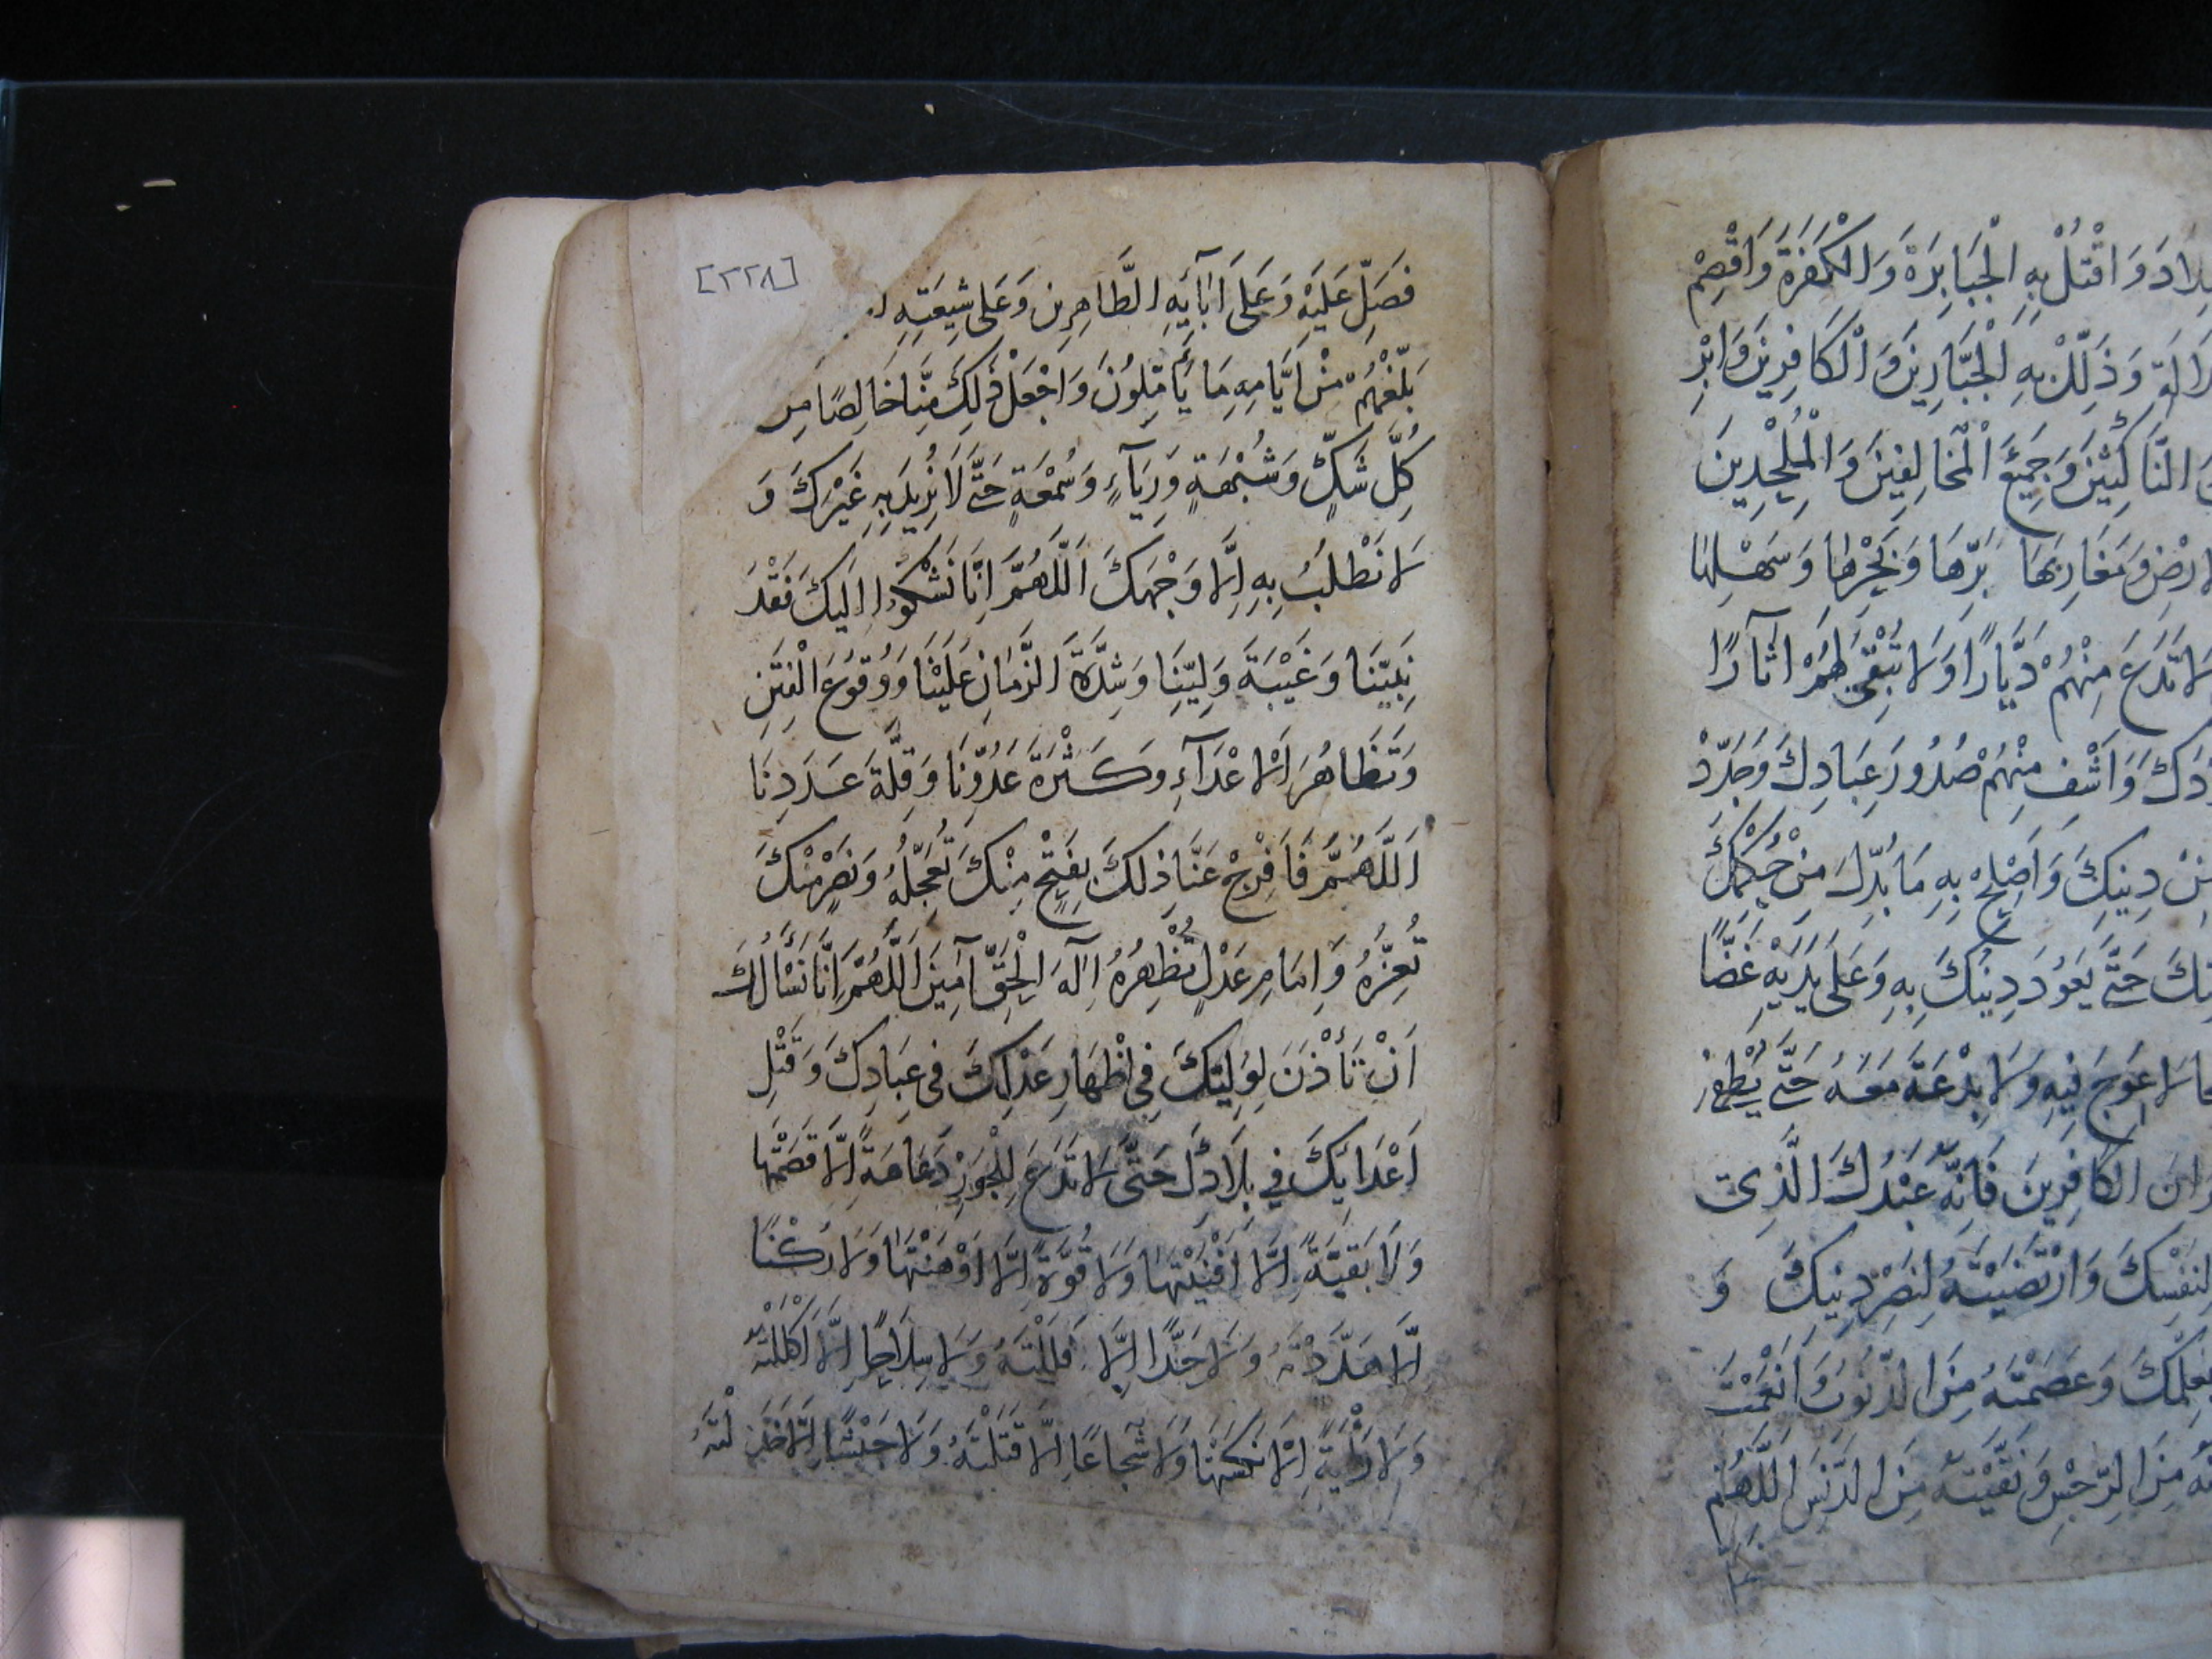 لاد وَاقْتُلْ بِهِ الْجَبَابِرَةَ وَالْكَفَرَةَ وَاقْصِمْ
وَذَلِّلْ بِهِ الْجَبَّارِينَ وَالْكَافِرِينَ وَابْرِ
النَّاكِثِينَ وَجَمِيعَ الْمُخَالِفِينَ وَالْمُلْحِدِينَ
لارْضِ وَمَغَارِبِهَا بَرِّهَا وَبَحْرِهَا وَسَهْلِهَا
لَا تَدَعَ مِنْهُمْ دَيَّارًا وَلَا تُبْقِىَ لَهُمْ اٰثَارًا
دَكَ وَاشْفِ مِنْهُمْ صُدُورَ عِبَادِكَ وَجَدِّدْ
مِنْ دِينِكَ وَاَصْلِحْ بِهِ مَا بُدِّلَ مِنْ حُكْمِكَ
تِكَ حَتّٰى يَعُودَ دِينُكَ بِهِ وَعَلٰى يَدَيْهِ غَضًّا
لَا عِوَجَ فِيهِ وَلَا بِدْعَةَ مَعَهُ حَتّٰى يُطْفِئَ
رَانَ الْكَافِرِينَ فَاِنَّهُ عَبْدُكَ الَّذِى
لِنَفْسِكَ وَارْتَضَيْتَهُ لِنَصْرِ دِينِكَ وَ
بِعِلْمِكَ وَعَصَمْتَهُ مِنَ الذُّنُوبِ وَاَنْعَمْتَ
تَهُ مِنَ الرِّجْسِ وَنَقَّيْتَهُ مِنَ الدَّنَسِ اَللّٰهُمَّ
[٢٢٨]
فَصَلِّ عَلَيْهِ وَعَلٰى اٰبَآئِهِ الطَّاهِرِين وَعَلٰى شِيعَتِهِ
بَلِّغْهُمْ مِنْ اَيَّامِهِ مَا يَأْمُلُونَ وَاجْعَلْ ذٰلِكَ مِنَّا خَالِصًا مِن
كُلِّ شَكٍّ وَشُبْهَةٍ وَرِيَآءٍ وَسُمْعَةٍ حَتّٰى لَا نُرِيدَ بِهِ غَيْرَكَ وَ
لَا نَطْلُبُ بِهِ اِلَّا وَجْهَكَ اَللّٰهُمَّ اِنَّا نَشْكُوا اِلَيكَ فَقْدَ
نَبِيِّنَا وَغَيْبَةَ وَلِيِّنَا وَشِدَّةَ الزَّمَانِ عَلَيْنَا وَوُقُوعَ الْفِتَنِ
وَتَظَاهُرَ الْاَعْدَآءِ وَكَثْرَةَ عَدُوِّنَا وَقِلَّةَ عَدَدِنَا
اَللّٰهُمَّ فَافْرِجْ عَنَّا ذٰلِكَ بِفَتْحٍ مِنْكَ تُعَجِّلُهُ وَنَصْرٍ مِنْكَ
تُعِزُّهُ وَاِمَامِ عَدْلٍ تُظْهِرُهُ اِلٰهَ الْحَقِّ آمِينَ اَللّٰهُمَّ اِنَّا نَسْأَلُكَ
اَنْ تَأْذَنَ لِوَلِيِّكَ فِى اِظْهَارِ عَدْلِكَ فِى عِبَادِكَ وَقَتْلِ
اَعْدَائِكَ فِى بِلَادِكَ حَتّٰى لَا تَدَعَ لِلْجَوْرِ دَعَامَةً اِلَّا قَصَمْتَهَا
وَلَا بَقِيَّةً اِلَّا اَفْنَيْتَهَا وَلَا قُوَّةً اِلَّا اَوْهَنْتَهَا وَلَا رُكْنًا
اِلَّا هَدَّدْتَهُ وَلَا حَدًّا اِلَّا فَلَلْتَهُ وَلَا سِلَاحًا اِلَّا اَكْلَلْتَهُ
وَلَا رَايَةً اِلَّا نَكَسْتَهَا وَلَا شُجَاعًا اِلَّا قَتَلْتَهُ وَلَا جَيْشًا اِلَّا خَذَلْتَهُ